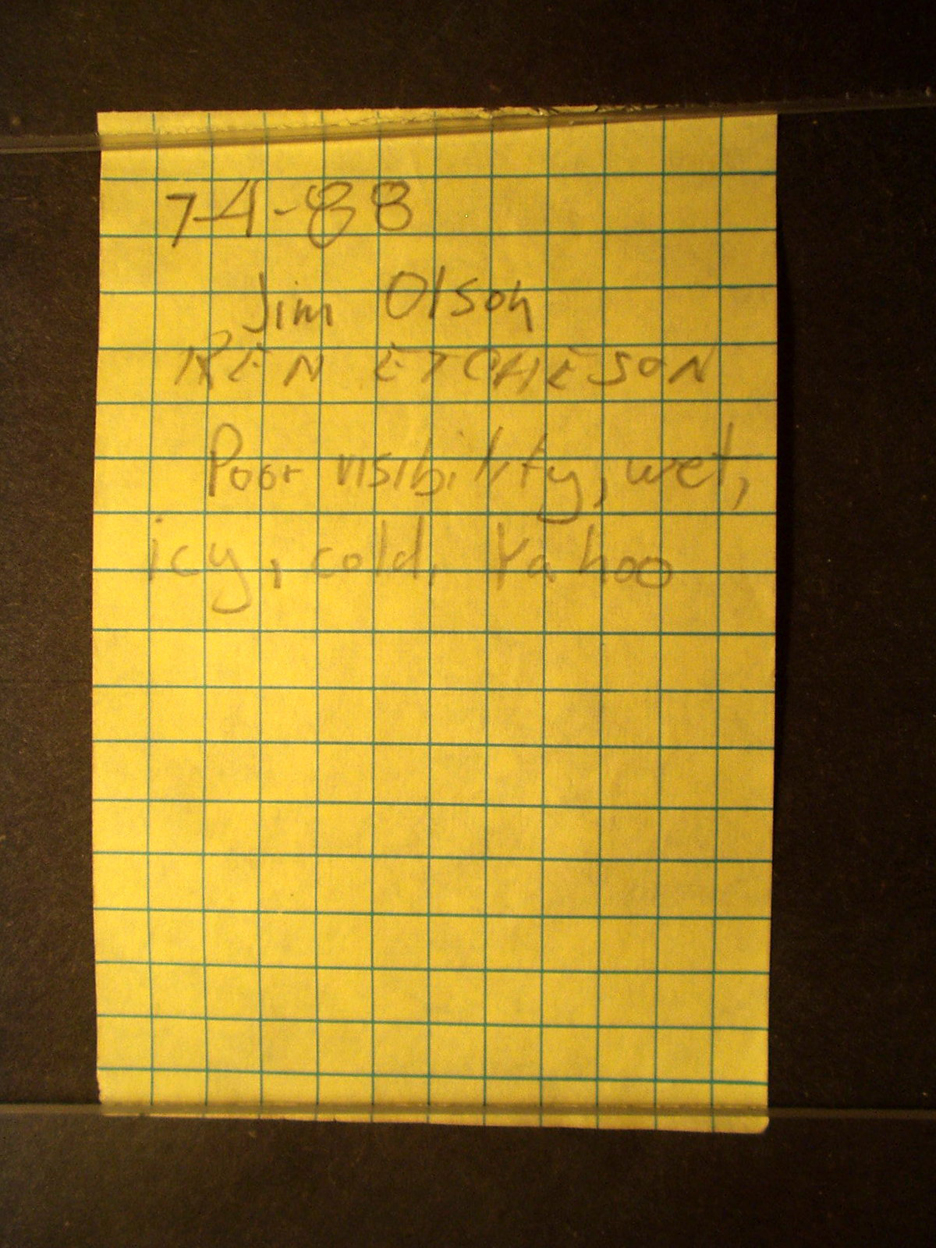 7-4-88
Jim Olson
KEN ETCHESON
Poor visibility, wet,
icy, cold. Yahoo